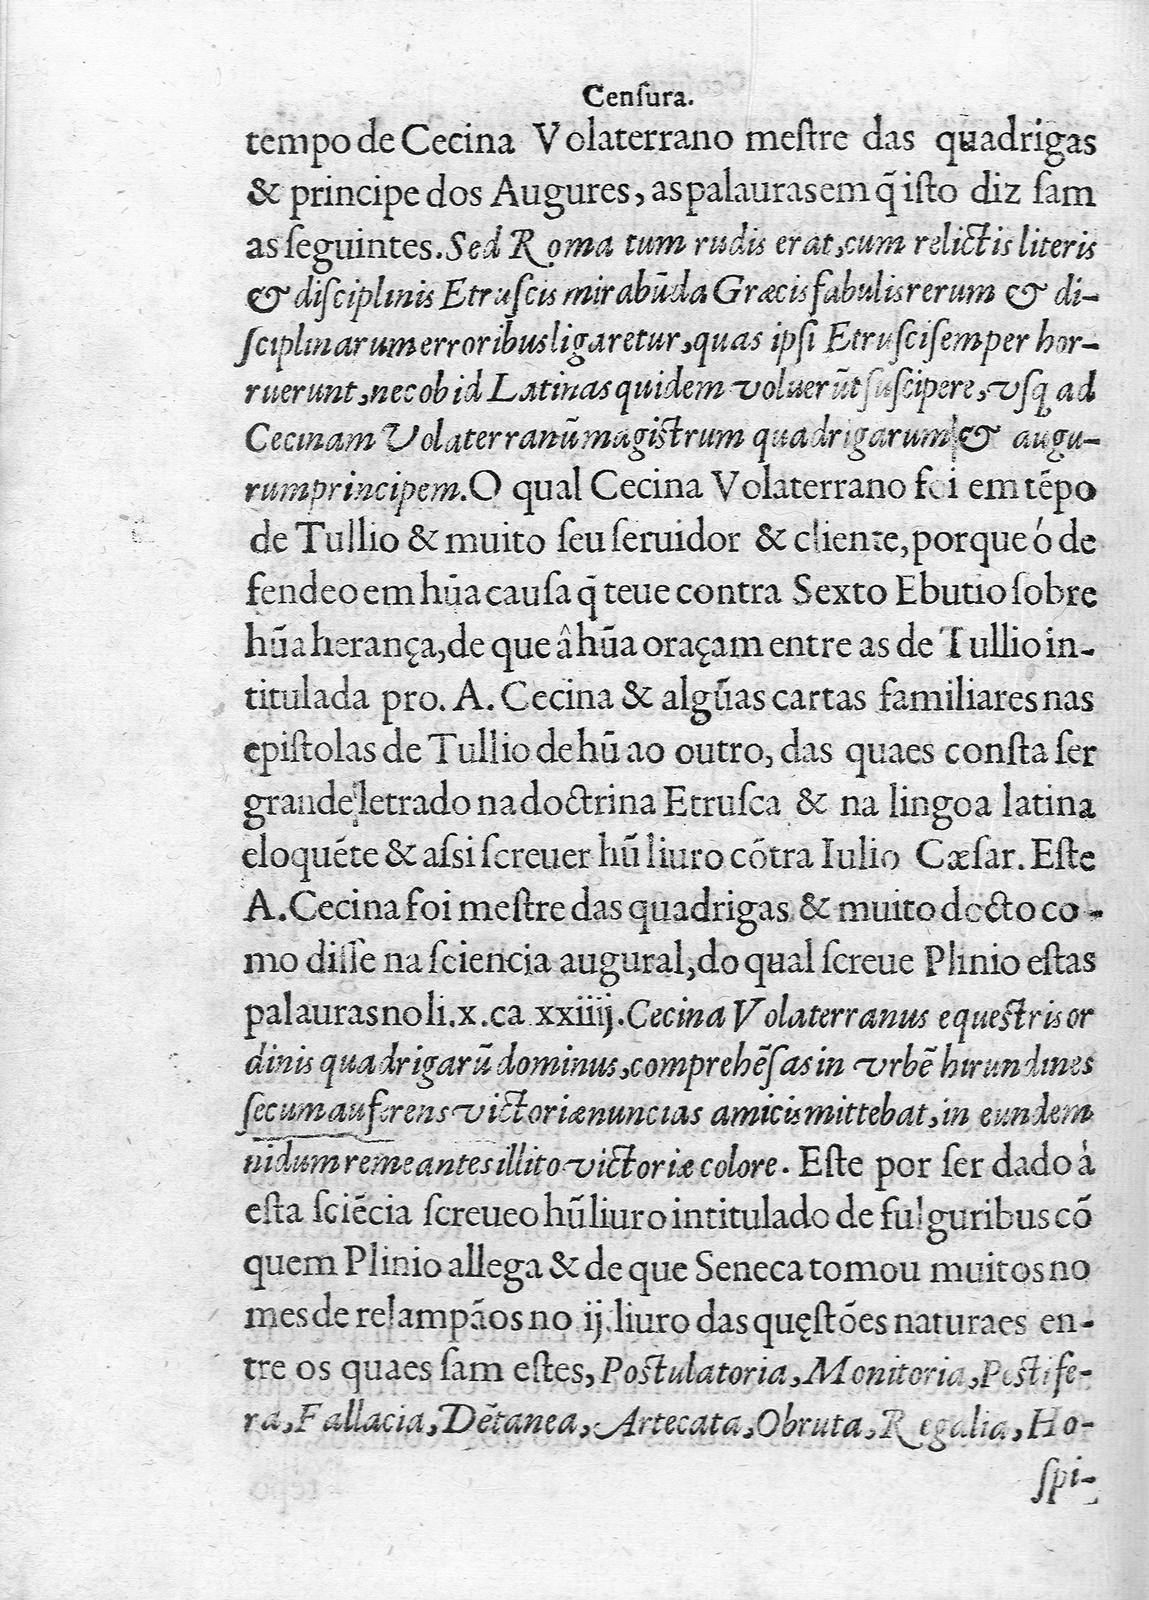 Cenſura.
tempo de Cecina Volaterrano meſtre das quadrigas
& principe dos Augures, as palauras em q̃ iſto diz ſam
as ſeguintes. Sed Roma tum rudis erat, cum relictis literis
& diſciplinis Etruſcis mirabūda Græcis fabulis rerum & di-
ſciplinarum erroribus ligaretur, quas ipſi Etruſci ſemper hor-
ruerunt, nec ob id Latinas quidem voluerūt ſuſcipere, vſq ad
Cecinam Volaterranū magiſtrum quadrigarum & augu-
rum principem. O qual Cecina Volaterrano foi em tẽpo
de Tullio & muito ſeu ſeruidor & cliente, porque ó de
fendeo em hũa cauſa q̃ teue contra Sexto Ebutio ſobre
hũa herança, de que â hũa oraçam entre as de Tullio in-
titulada pro. A. Cecina & algũas cartas familiares nas
epiſtolas de Tullio de hũ ao outro, das quaes conſta ſer
grande letrado na doctrina Etruſca & na lingoa latina
eloquẽte & aſsi ſcreuer hũ liuro cõtra Iulio Cæſar. Eſte
A. Cecina foi meſtre das quadrigas & muito docto co-
mo diſſe na ſciencia augural, do qual ſcreue Plinio eſtas
palauras no li. x. ca xxiiij. Cecina Volaterranus equeſtris or
dinis quadrigarū dominus, comprehẽſas in vrbẽ hirundines
ſecum auferens victoriæ nuncias amicis mittebat, in eundem
nidum remeantes illito victoriæ colore. Eſte por ſer dado à
eſta ſciẽcia ſcreueo hũ liuro intitulado de fulguribus cõ
quem Plinio allega & de que Seneca tomou muitos no
mes de relampãos no ij. liuro das quęſtões naturaes en-
tre os quaes ſam eſtes, Poſtulatoria, Monitoria, Peſtife-
ra, Fallacia, Dẽtanea, Artecata, Obruta, Regalia, Ho-
ſpi-